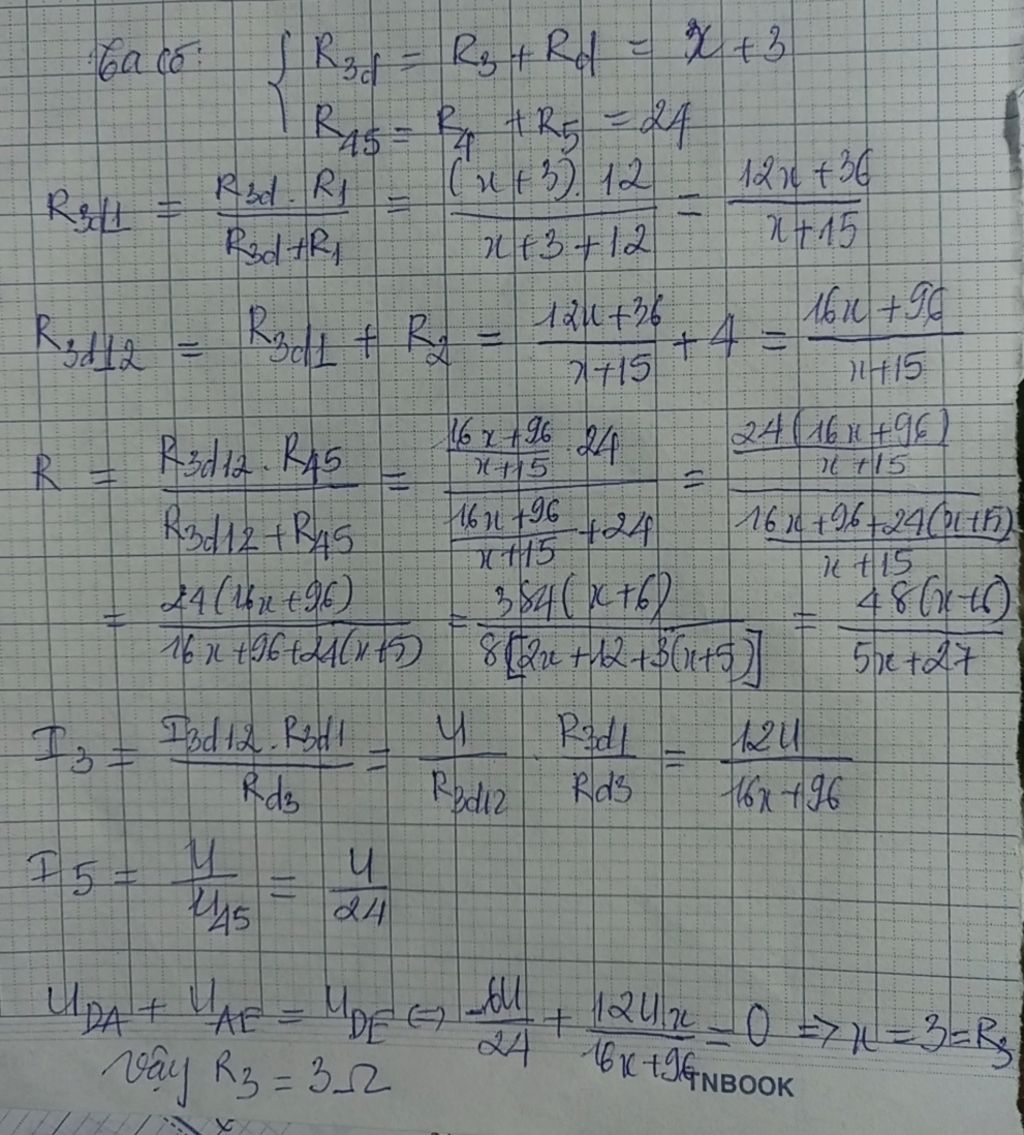 Ta có: { R_3d = R_3 + R_d = x + 3
R_45 = R_4 + R_5 = 24
R_3d1 = \frac{R_3d . R_1}{R_3d + R_1} = \frac{(x+3). 12}{x+3+12} = \frac{12x+36}{x+15}
R_3d12 = R_3d1 + R_2 = \frac{12x+36}{x+15} + 4 = \frac{16x+96}{x+15}
R = \frac{R_3d12 . R_45}{R_3d12 + R_45} = \frac{\frac{16x+96}{x+15} . 24}{\frac{16x+96}{x+15} + 24} = \frac{\frac{24(16x+96)}{x+15}}{\frac{16x+96+24(x+15)}{x+15}}
= \frac{24(16x+96)}{16x+96+24(x+5)} = \frac{384(x+6)}{8[2x+12+3(x+5)]} = \frac{48(x+6)}{5x+27}
I_3 = \frac{I_3d12 . R_3d1}{R_d3} = \frac{U}{R_3d12} . \frac{R_3d1}{R_d3} = \frac{12U}{16x+96}
I_5 = \frac{U}{U_45} = \frac{U}{24}
U_DA + U_AE = U_DE ⇔ \frac{-6U}{24} + \frac{12Ux}{16x+96} = 0 => x = 3 = R_3
Vậy R_3 = 3Ω
TNBOOK